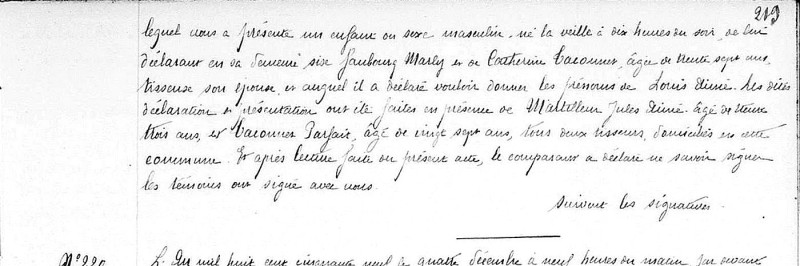 219
lequel nous a présenté un enfant du sexe masculin, né la veille à dix heures du soir, de lui
déclarant en sa demeure sise faubourg Marly et de Catherine Caronnet, âgée de trente sept ans,
tisseuse son épouse, et auquel il a déclaré vouloir donner les prénoms de Louis Aimé. Les dites
déclaration et présentation ont été faites en présence de Jules Aimé âgé de trente
trois ans, et Caronnet Parfait, âgé de vingt sept ans, tous deux tisseurs, domiciliés en cette
commune. Et après lecture faite du présent acte, le comparant a déclaré ne savoir signer
les témoins ont signé avec nous.
Suivent les signatures.
N° 220 L'An mil huit cent cinquante neuf le quatre décembre à neuf heures du matin par devant